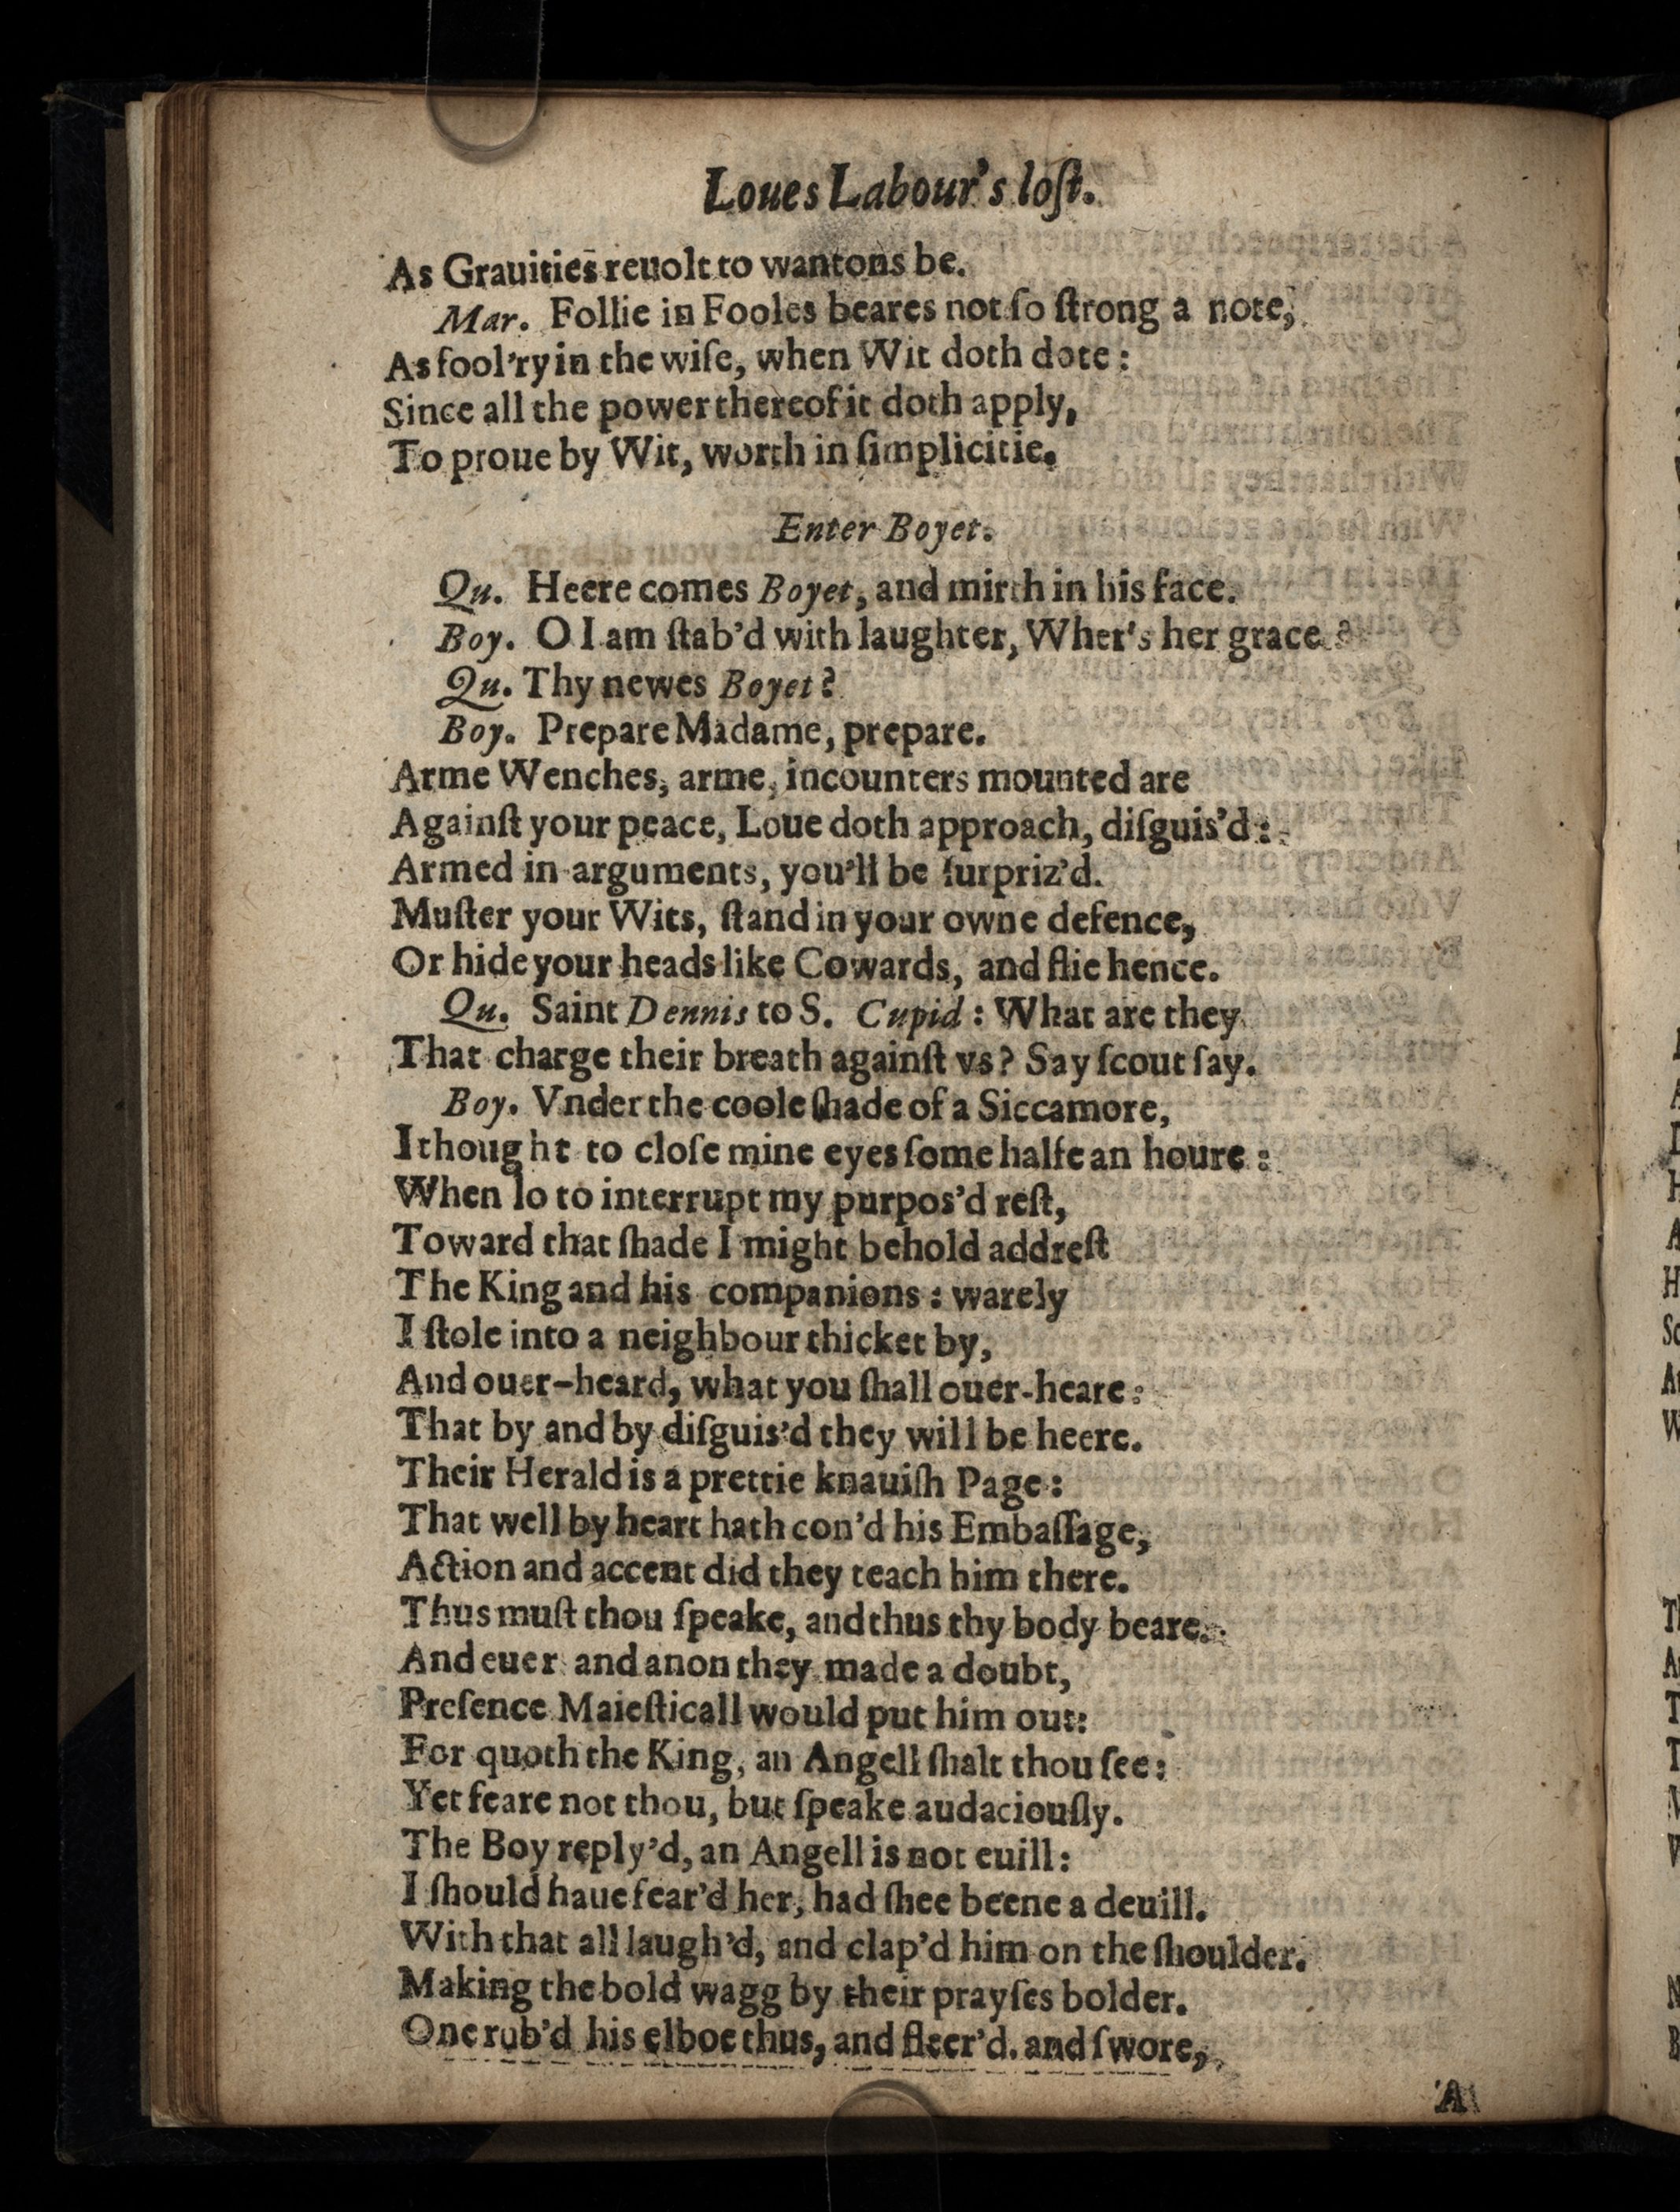 Loues Labour's loſt.
As Grauities reuolt to wantons be.
Mar. Follie in Fooles beares not ſo ſtrong a note,
As fool'ry in the wiſe, when Wit doth dote:
Since all the power thereof it doth apply,
To proue by Wit, worth in ſimplicitie.
Enter Boyet.
Qu. Heere comes Boyet, and mirth in his face.
Boy. O I am ſtab'd with laughter, Wher's her grace?
Qu. Thy newes Boyet?
Boy. Prepare Madame, prepare.
Arme Wenches, arme, incounters mounted are
Againſt your peace, Loue doth approach, diſguis'd:
Armed in arguments, you'll be ſurpriz'd.
Muſter your Wits, ſtand in your owne defence,
Or hide your heads like Cowards, and flie hence.
Qu. Saint Dennis to S. Cupid: What are they
That charge their breath againſt vs? Say ſcout ſay.
Boy. Vnder the coole ſhade of a Siccamore,
I thought to cloſe mine eyes ſome halfe an houre:
When lo to interrupt my purpos'd reſt,
Toward that ſhade I might behold addreſt
The King and his companions: warely
I ſtole into a neighbour thicket by,
And ouer-heard, what you ſhall ouer-heare:
That by and by diſguis'd they will be heere.
Their Herald is a prettie knauiſh Page:
That well by heart hath con'd his Embaſſage,
Action and accent did they teach him there.
Thus muſt thou ſpeake, and thus thy body beare.
And euer and anon they made a doubt,
Preſence Maieſticall would put him out:
For quoth the King, an Angell ſhalt thou ſee:
Yet feare not thou, but ſpeake audaciouſly.
The Boy reply'd, an Angell is not euill:
I ſhould haue fear'd her, had ſhee beene a deuill.
With that all laugh'd, and clap'd him on the ſhoulder.
Making the bold wagg by their prayſes bolder.
One rub'd his elboe thus, and fleer'd. and ſwore,
A